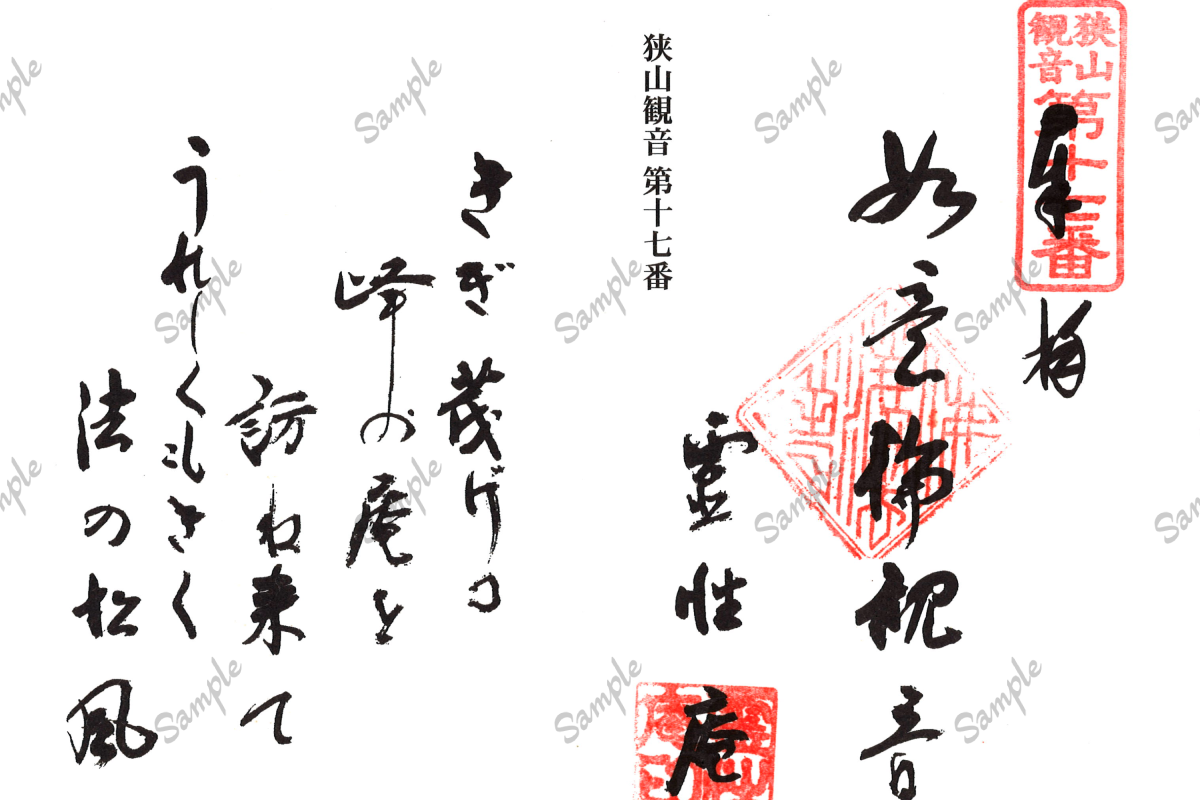 狭山
観音
第十七番
奉拝
如意輪観音
靈性庵
狭山観音 第十七番
きぎ茂げる
峰の庵を
訪ね来て
うれしくもきく
法の松風
Sample
Sample
Sample
Sample
Sample
Sample
Sample
Sample
Sample
Sample